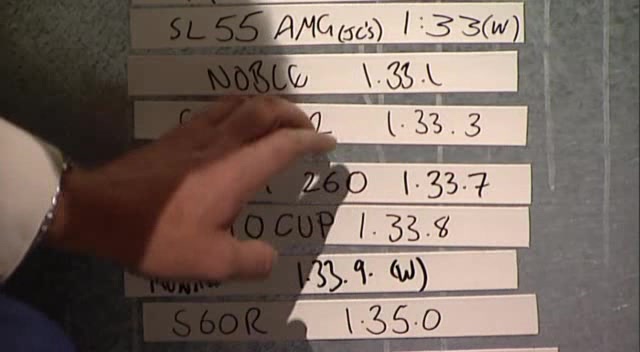 SL55 AMG (JC's) 1:33 (W)
NOBLE 1.33.1
1.33.3
260 1.33.7
O CUP 1.33.8
1.33.9. (W)
S60R 1.35.0